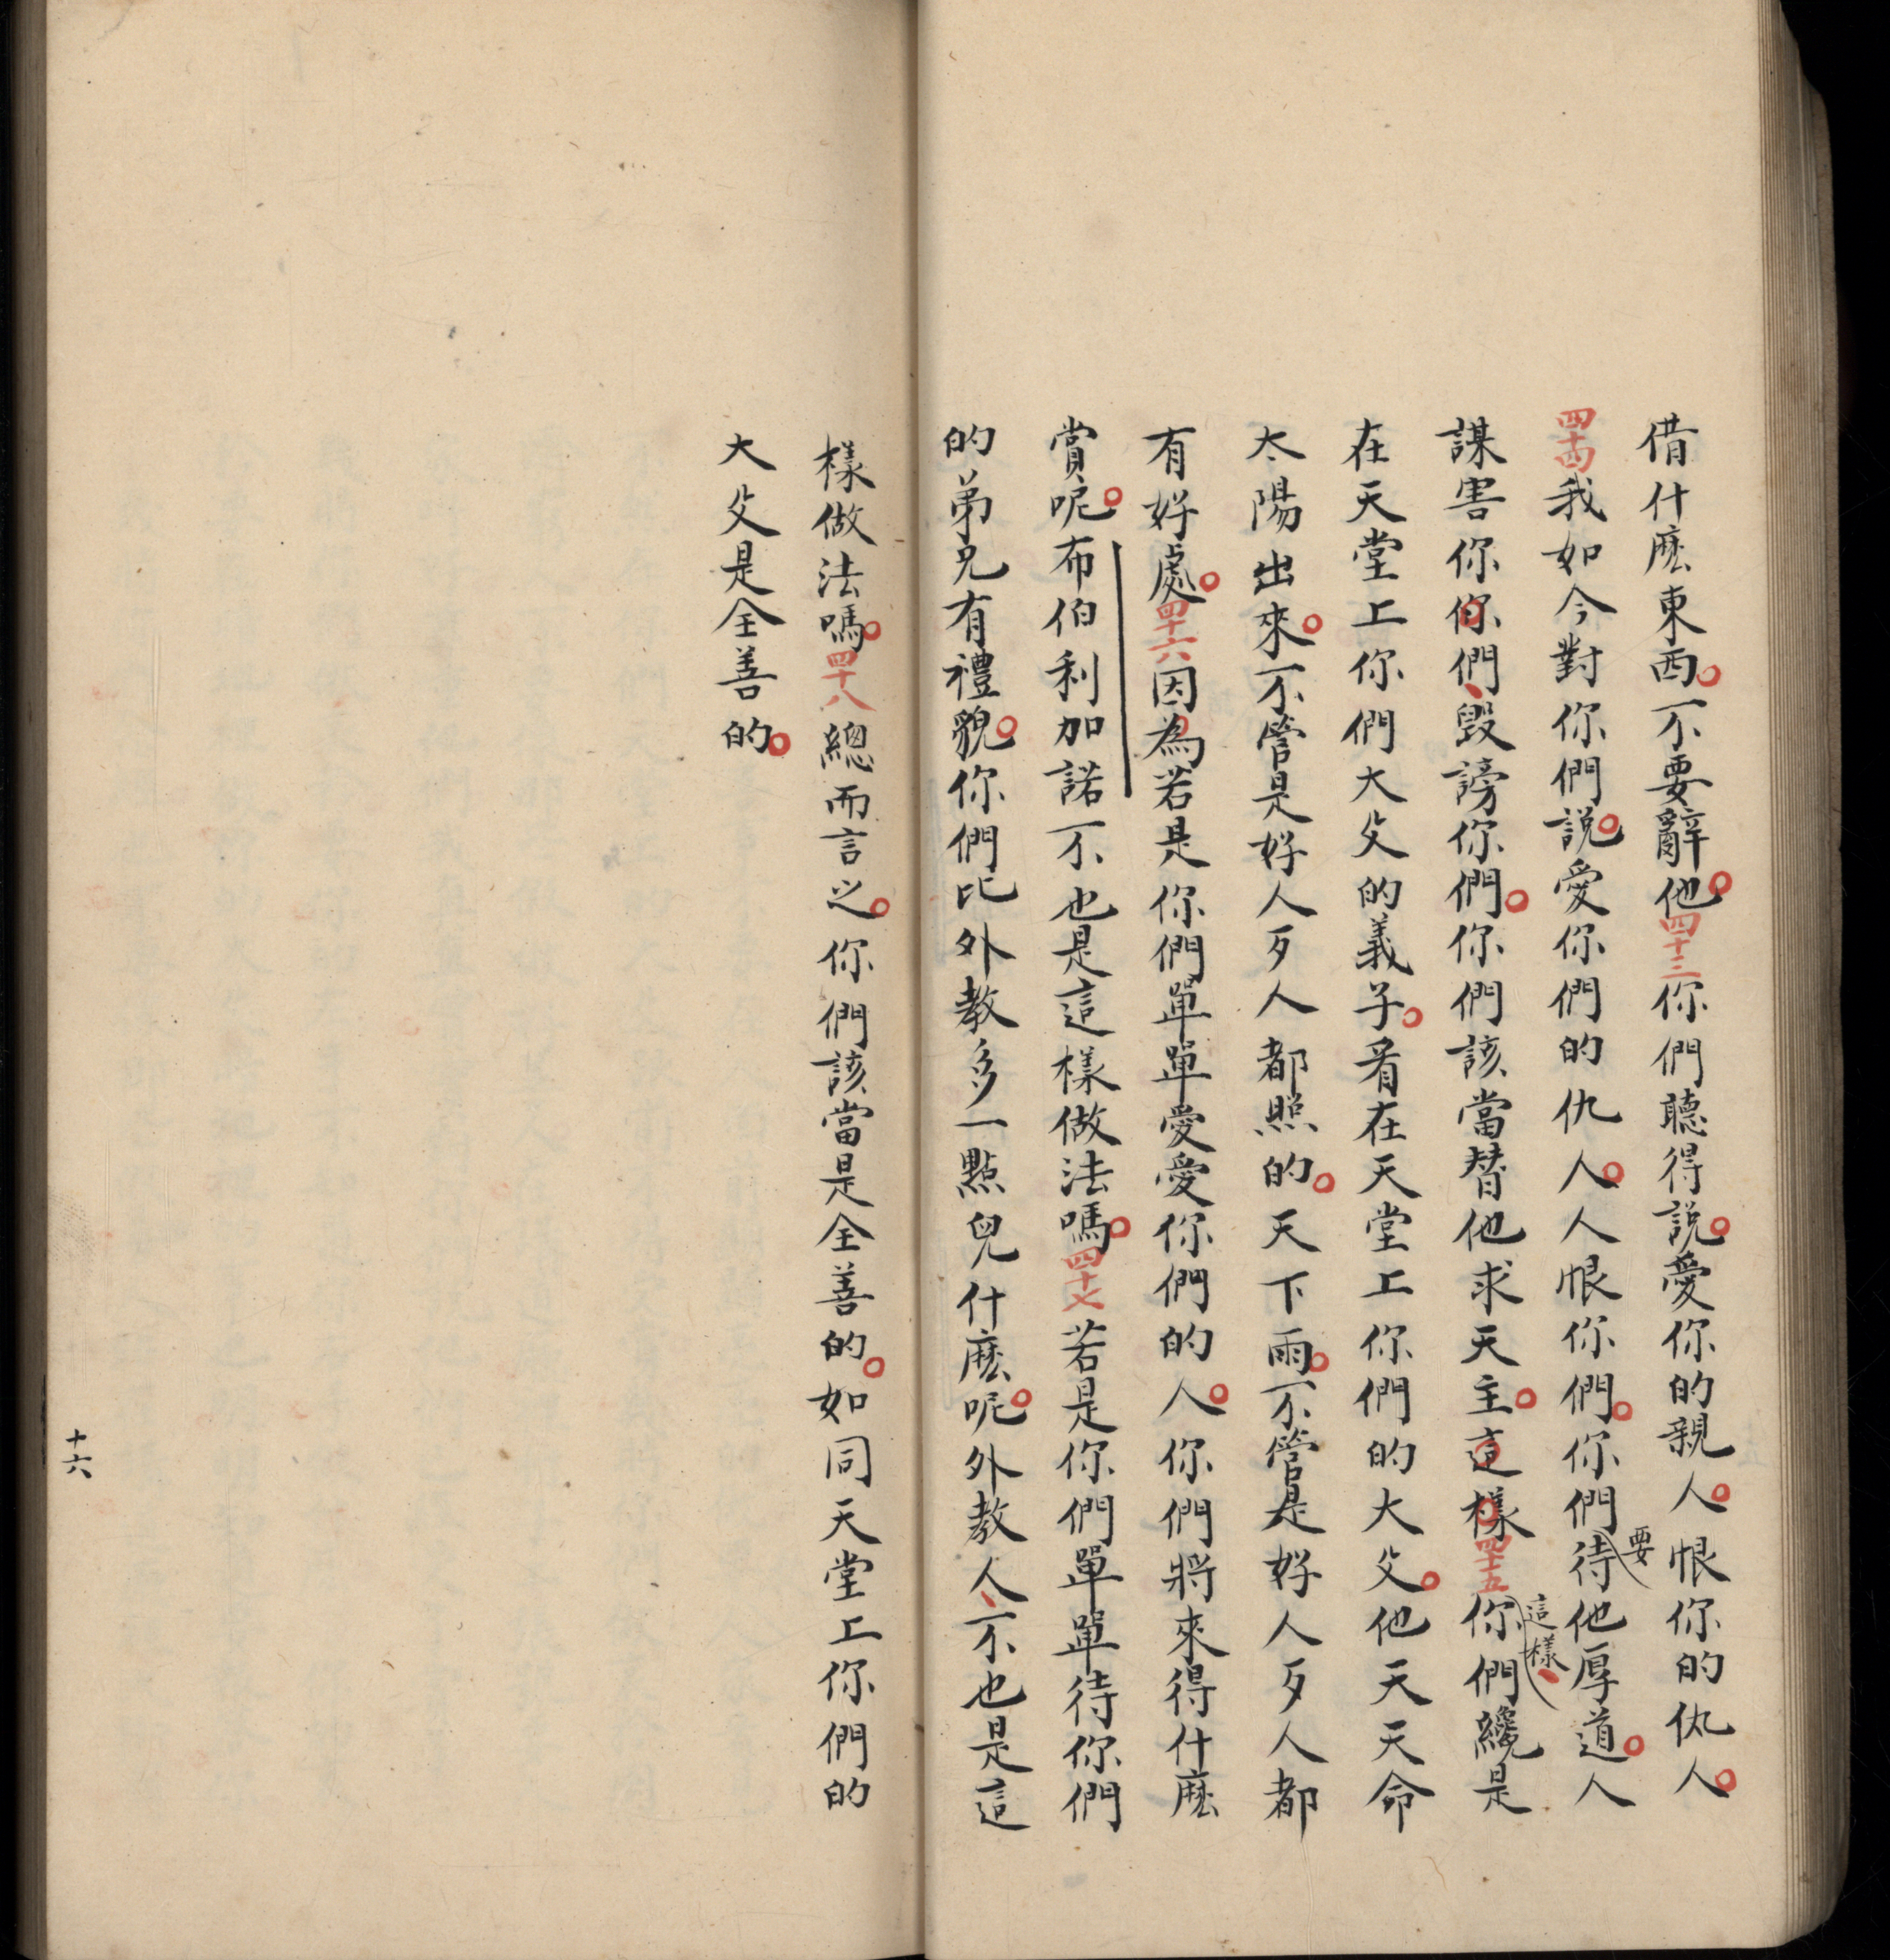 借什麽東西。不要辭他。四十三你們聽得説。愛你的親人。恨你的仇人。
四十四我如今對你們説。愛你們的仇人。人恨你們。你們要待他厚道。人
謀害你你們、毀謗你們。你們該當替他求天主。這樣。四十五這樣、你們纔是
在天堂上你們大父的義子。看在天堂上你們的大父。他天天命
太陽出來。不管是好人歹人都照的。天下雨。不管是好人歹人都
有好處。四十六因為若是你們單單愛愛你們的人。你們將來得什麽
賞呢。布伯利加諾不也是這樣做法嗎。四十七若是你們單單待你們
的弟兄有禮貌。你們比外教多一點兒什麽呢。外教人、不也是這
樣做法嗎。四十八總而言之。你們該當是全善的。如同天堂上你們的
大父是全善的。
十六